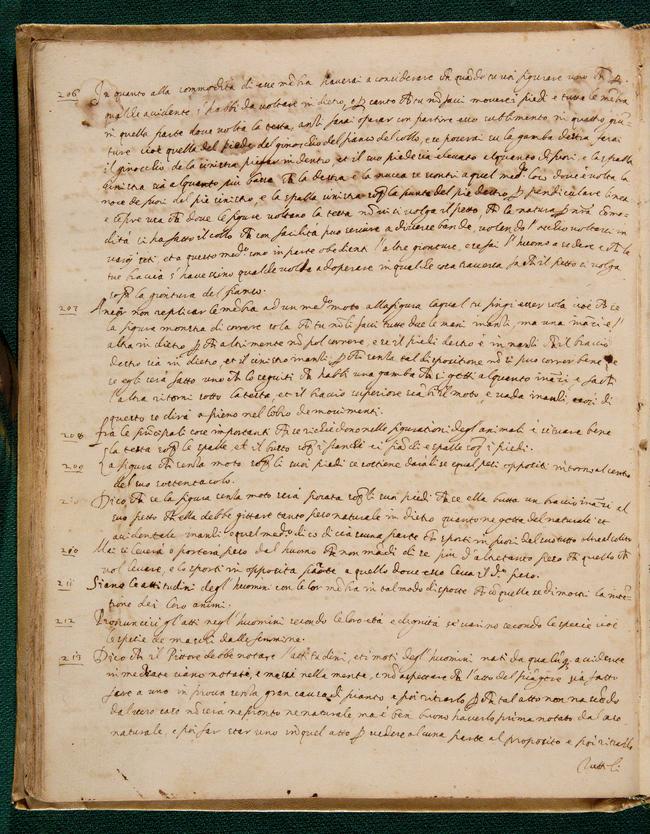 206 In quanto alla commodità di esse membra haverai a considerare quando tu vuoi figurare uno
accidente s'habbi da voltare in dietro, o canto tu non facci movere i piedi e tutte le membra
in quella parte dove volta la testa, anzi farai operar con partire esso in quattro giun-
ture cioè quella del piede del ginocchio del fianco del collo, e se poserai su la gamba destra, farai
il ginocchio de la sinistra piegar in dentro, et il suo piede sia elevato alquanto di fuori, e la spalla
sinistra sia alquanto più bassa la destra e la nucca se scontri a quel loco dove è volta la
noce de fuori del pie sinistro, e la spalla sinistra la punta del pie destro perpendiculare linea
e sempre usa dove le figure voltano la testa non vi si volga il petto, la natura como-
dità ci ha fatto il collo con facilità può servire a diverse bande, volendo l'occhio voltarsi in
varij siti, et a questo sono in parte obedienti l'altre gionture, e se fai l'huomo a sedere e le
tue braccia s'havessino qualche volta adoperare in qualche cosa traversa, fa il petto si volga
la giontura del fianco.
207 non replicar le membra ad un moto alla figura laqual tu fingi esser sola cioè se
la figura mostra di correre sola tu non li facci tutte due le mani inanzi, ma una inanzi e l'
altra in dietro altrimente non pol correre, e se il piedi destro è inanti il braccio
destro sia in dietro, et il sinistro inanti, senza tal dispositione non si puo correr bene, e
se egli sarà fatto uno lo seguiti habbi una gamba si getti alquanto inanzi, e facci
l'altra ritorni sotto la testa, et il braccio superiore il moto, e vada inanti così di
questo se dirà a pieno nel libro de movimenti.
208 fra le principali cose importanti se richiedeno nelle figurationi degl'animali è situare bene
la testa le spalle, et il busto i fianchi e i fianchi e spalle i piedi.
209 La figura senza moto i suoi piedi se sostiene darà di se equal pesi oppositi intorno al centro
del suo sostentacolo.
Dico se la figura senza moto sarà posata i suoi piedi se ella butta un braccio inanzi al
suo petto ella debbe gittare tanto peso naturale in dietro quanto ne getta del naturale et
accidentale inanti e quel di co di ciascuna parte sporti in fuori del suo tutto oltra el solito
210 Mai se leverà o porterà peso dal huomo non mandi di se più d'altretanto peso quello
vol levare, e lo sporti in opposita parte a quello dove esso leva il peso.
211 Siano le attitudini degl'huomini con le lor membra in tal modo disposte quelle se dimostri la inten-
tione dei loro animi.
212 Pronuncisi gl'atti negl'huomini secondo le loro età e dignità se varino secondo le specie cioè
le specie de mascoli dalle femmine.
213 Dico il Pittore debbe notare l'attitudini, et i moti degl'huomini nati da qualunque accidente
immediate siano notati, e messi nella mente, e non aspettare l'atto del piangere sia fatto
fare a uno in prova senza gran causa di pianto e poi ritrarlo tal atto non nascendo
dal vero caso non sarà ne pronto ne naturale ma è ben buono haverlo prima notato dal caso
naturale, e poi far star uno in quel atto vedere alcuna parte al proposito e poi ritrarlo